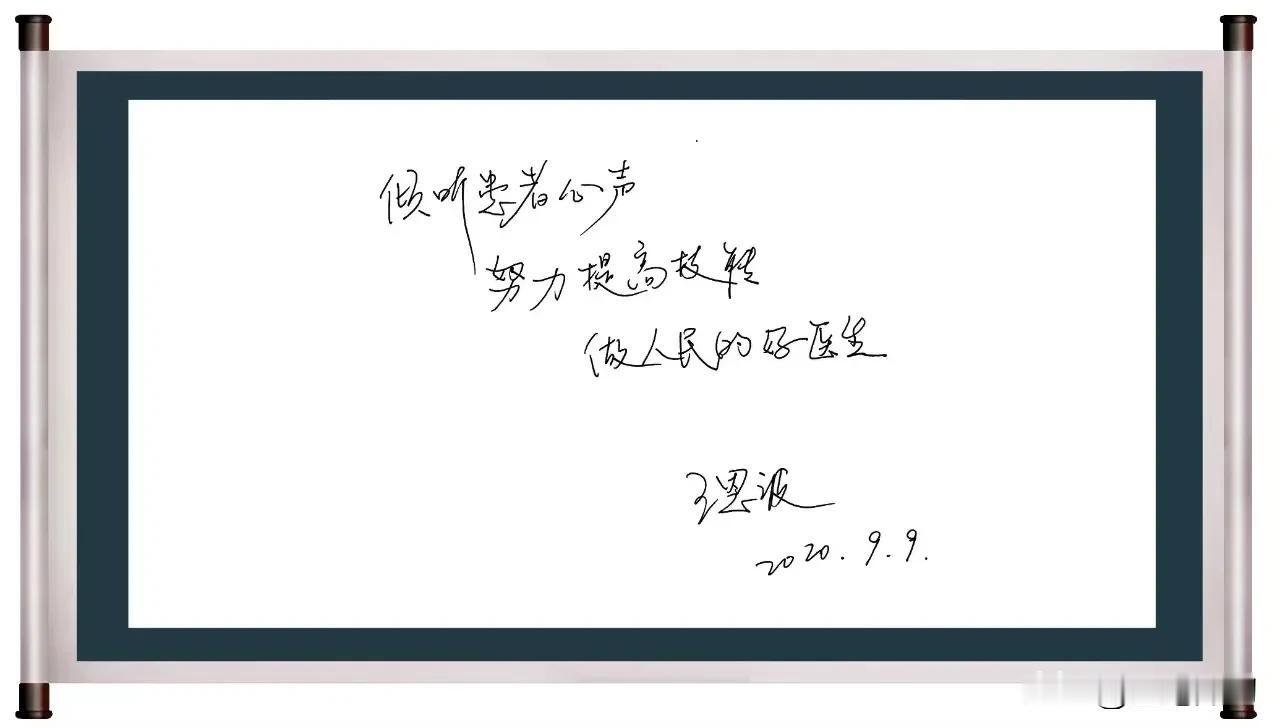 倾听患者心声
努力提高技
做人民的好医生
王恩波
2020.9.9.